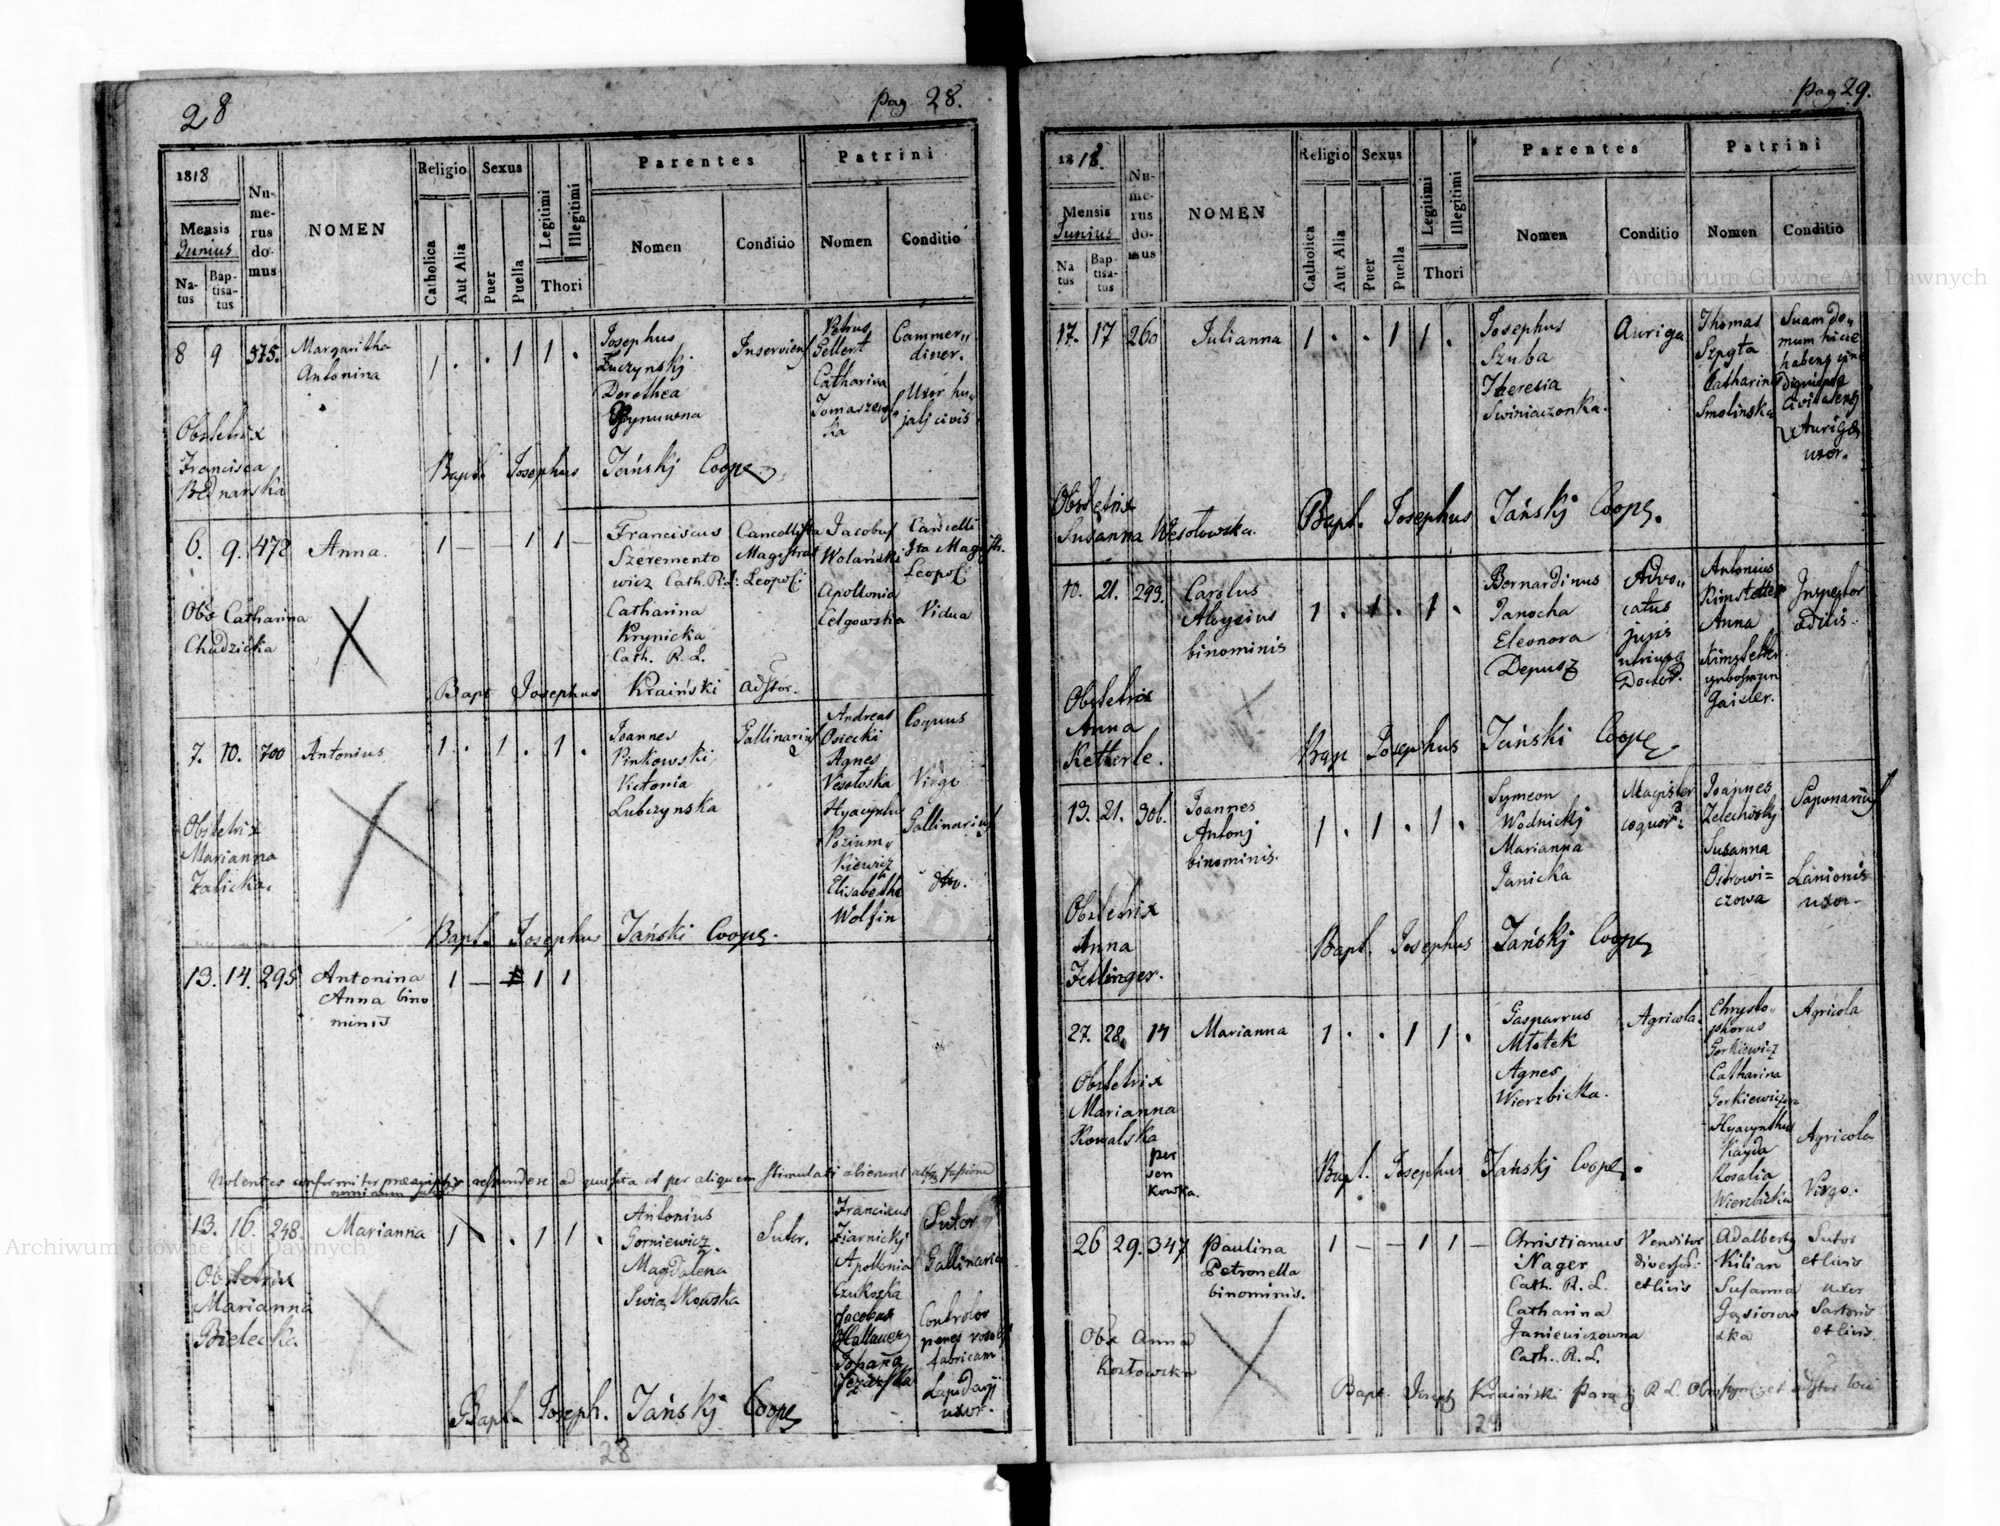 28
pag 28.
1818
Mensis
Junius
Na-
tus
Bap-
tisa-
tus
Nu-
me-
rus
do-
mus
NOMEN
Religio
Catholica
Aut Alia
Sexus
Puer
Puella
Legitimi
Illegitimi
Thori
Parentes
Nomen
Conditio
Patrini
Nomen
Conditio
8 9 575. Margaritha
Antonina
1 . . 1 1 .
Josephus
Łuczynskj
Dorothea
Inserviens
Petrus
Gellert
Catharina
Tomaszews
ka
Cammer„
diner.
Uxor hu„
jatj civis
Obstetrix
Francisca
Bednarska
Bapt. Josephus Tańskj Coope
6. 9. 472 Anna.
1 — — 1 1 —
Franciscus
Szeremento
wicz Cath. R. L:
Catharina
Krynicka
Cath. R. L.
Cancellista
Magistrat
Leopol:
Jacobus
Wolański
Apollonia
Celgowska
Cancelli
sta Magistr.
Leopol:
Vidua
Obs Catharina
Chudzicka
Bapt Josephus Kraiński adstor.
7. 10. 700 Antonius
1 . 1 . 1 .
Joannes
Pinkowski
Victonia
Lubczynska
Gallinarius
Andreas
Osiecki
Agnes
Vesołoska
Hyacyntus
Pozium„
kiewicz
Elisabetha
Wolfin
Coquus
Virgo
Gallinarius
dtto.
Obstetrix
Marianna
Zalicka.
Bapt. Josephus Tański Coope.
13. 14. 295 Antonina
Anna bino
minis
1 — 1 1
Nolentes conformiter praescriptis respondere ad quaesita et per aliquem stimulati abierunt
13. 16. 248. Marianna
1 . . 1 1 .
Antonius
Gorniewicz.
Magdalena
Swiątkowska
Sutor.
Franciscus
Ziarnickj
Apollonia
Czukoska
Jacobus
Hallauer
Sutor
Gallinaria
Controlor
penes
fabricam
Lapidarij
uxor.
Obstetrix
Marianna
Bielecka
Bapt. Joseph. Tańskj Coope
28
pag 29.
1818.
Mensis
Junius
Na
tus
Bap-
tisa-
tus
Nu-
me-
rus
do-
mus
NOMEN
Religio
Catholica
Aut Alia
Sexus
Puer
Puella
Legitimi
Illegitimi
Thori
Parentes
Nomen
Conditio
Patrini
Nomen
Conditio
17. 17 260 Julianna
1 . . 1 1 .
Josephus
Szuba
Theresia
Swiniaczonka.
Auriga
Thomas
Szpyta
Catharina
Smolinska
Suam do„
mum hicce
habens
Aurigae
uxor.
Obstetrix
Susanna Wesołowska.
Bapt. Josephus Tańskj Coope.
10. 21. 293. Carolus
Aloysius
binominis
1 . 1 . 1 .
Bernardinus
Janocha
Eleonora
Depusz
Advo„
catus
juris
utriusq
Doctor.
Antonius
Rimstetter
Anna
Rimstetter
Gaisler.
Inspector
aedilis.
Obstetrix
Anna
Ketterle.
Bap Josephus Tański Coope
13. 21. 306. Joannes
Antonj
binominis.
1 . 1 . 1 .
Symeon
Wodnickj
Marianna
Janicka
Magister
coquor:
Joannes
Zelechoskj
Susanna
Ostrowi=
czowa
Saponarius
Lanionis
uxor.
Obstetrix
Anna
Jettinger.
Bapt. Josephus Tańskj Coope
27. 28. 14 Marianna
1 . . 1 1 .
Gasparrus
Młotek
Agnes
Wierzbicka.
Agricola.
Chrysto„
phorus
Gorkiewicz
Catharina
Gorkiewiczowa
Hyacynthus
Kayda
Rosalia
Wierzbicka
Agricola
Agricola
Virgo.
Obstetrix
Marianna
Kowalska
per
sen
kowka.
Bapt. Josephus Tańskj Coope
26 29. 347 Paulina
Petronella
binominis.
1 — — 1 1 —
Christianus
Nager
Cath. R. L.
Catharina
Janiewiczowna
Cath. R. L.
Venditor
diversor:
et civis
Adalbertg
Kilian
Susanna
Gąsiorow
ska
Sutor
et civis
uxor
Sartoris
et civis.
Obs Anna
Kozłowska
Bapt. Joseph Kraiński Paroch R. L. et adstor loci
29
Archiwum Główne Akt Dawnych
Archiwum Główne Akt Dawnych